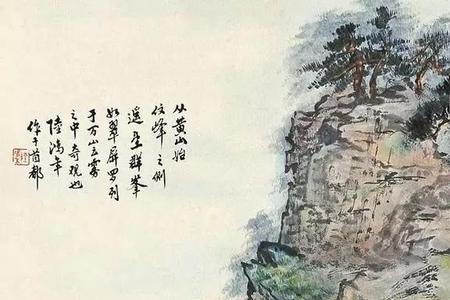 从黄山始
信峰之側
遥望群峯
如翠屏罗列
于万山云雾
之中奇观也
陸鴻年
作于首都